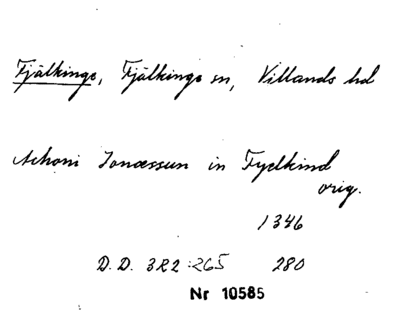 Fjälkinge, Fjälkinge sn, Villands hd
Achoni Jonæssun in Fyelkind
orig.
1346
D.D. 3R2:265 280
Nr 10585